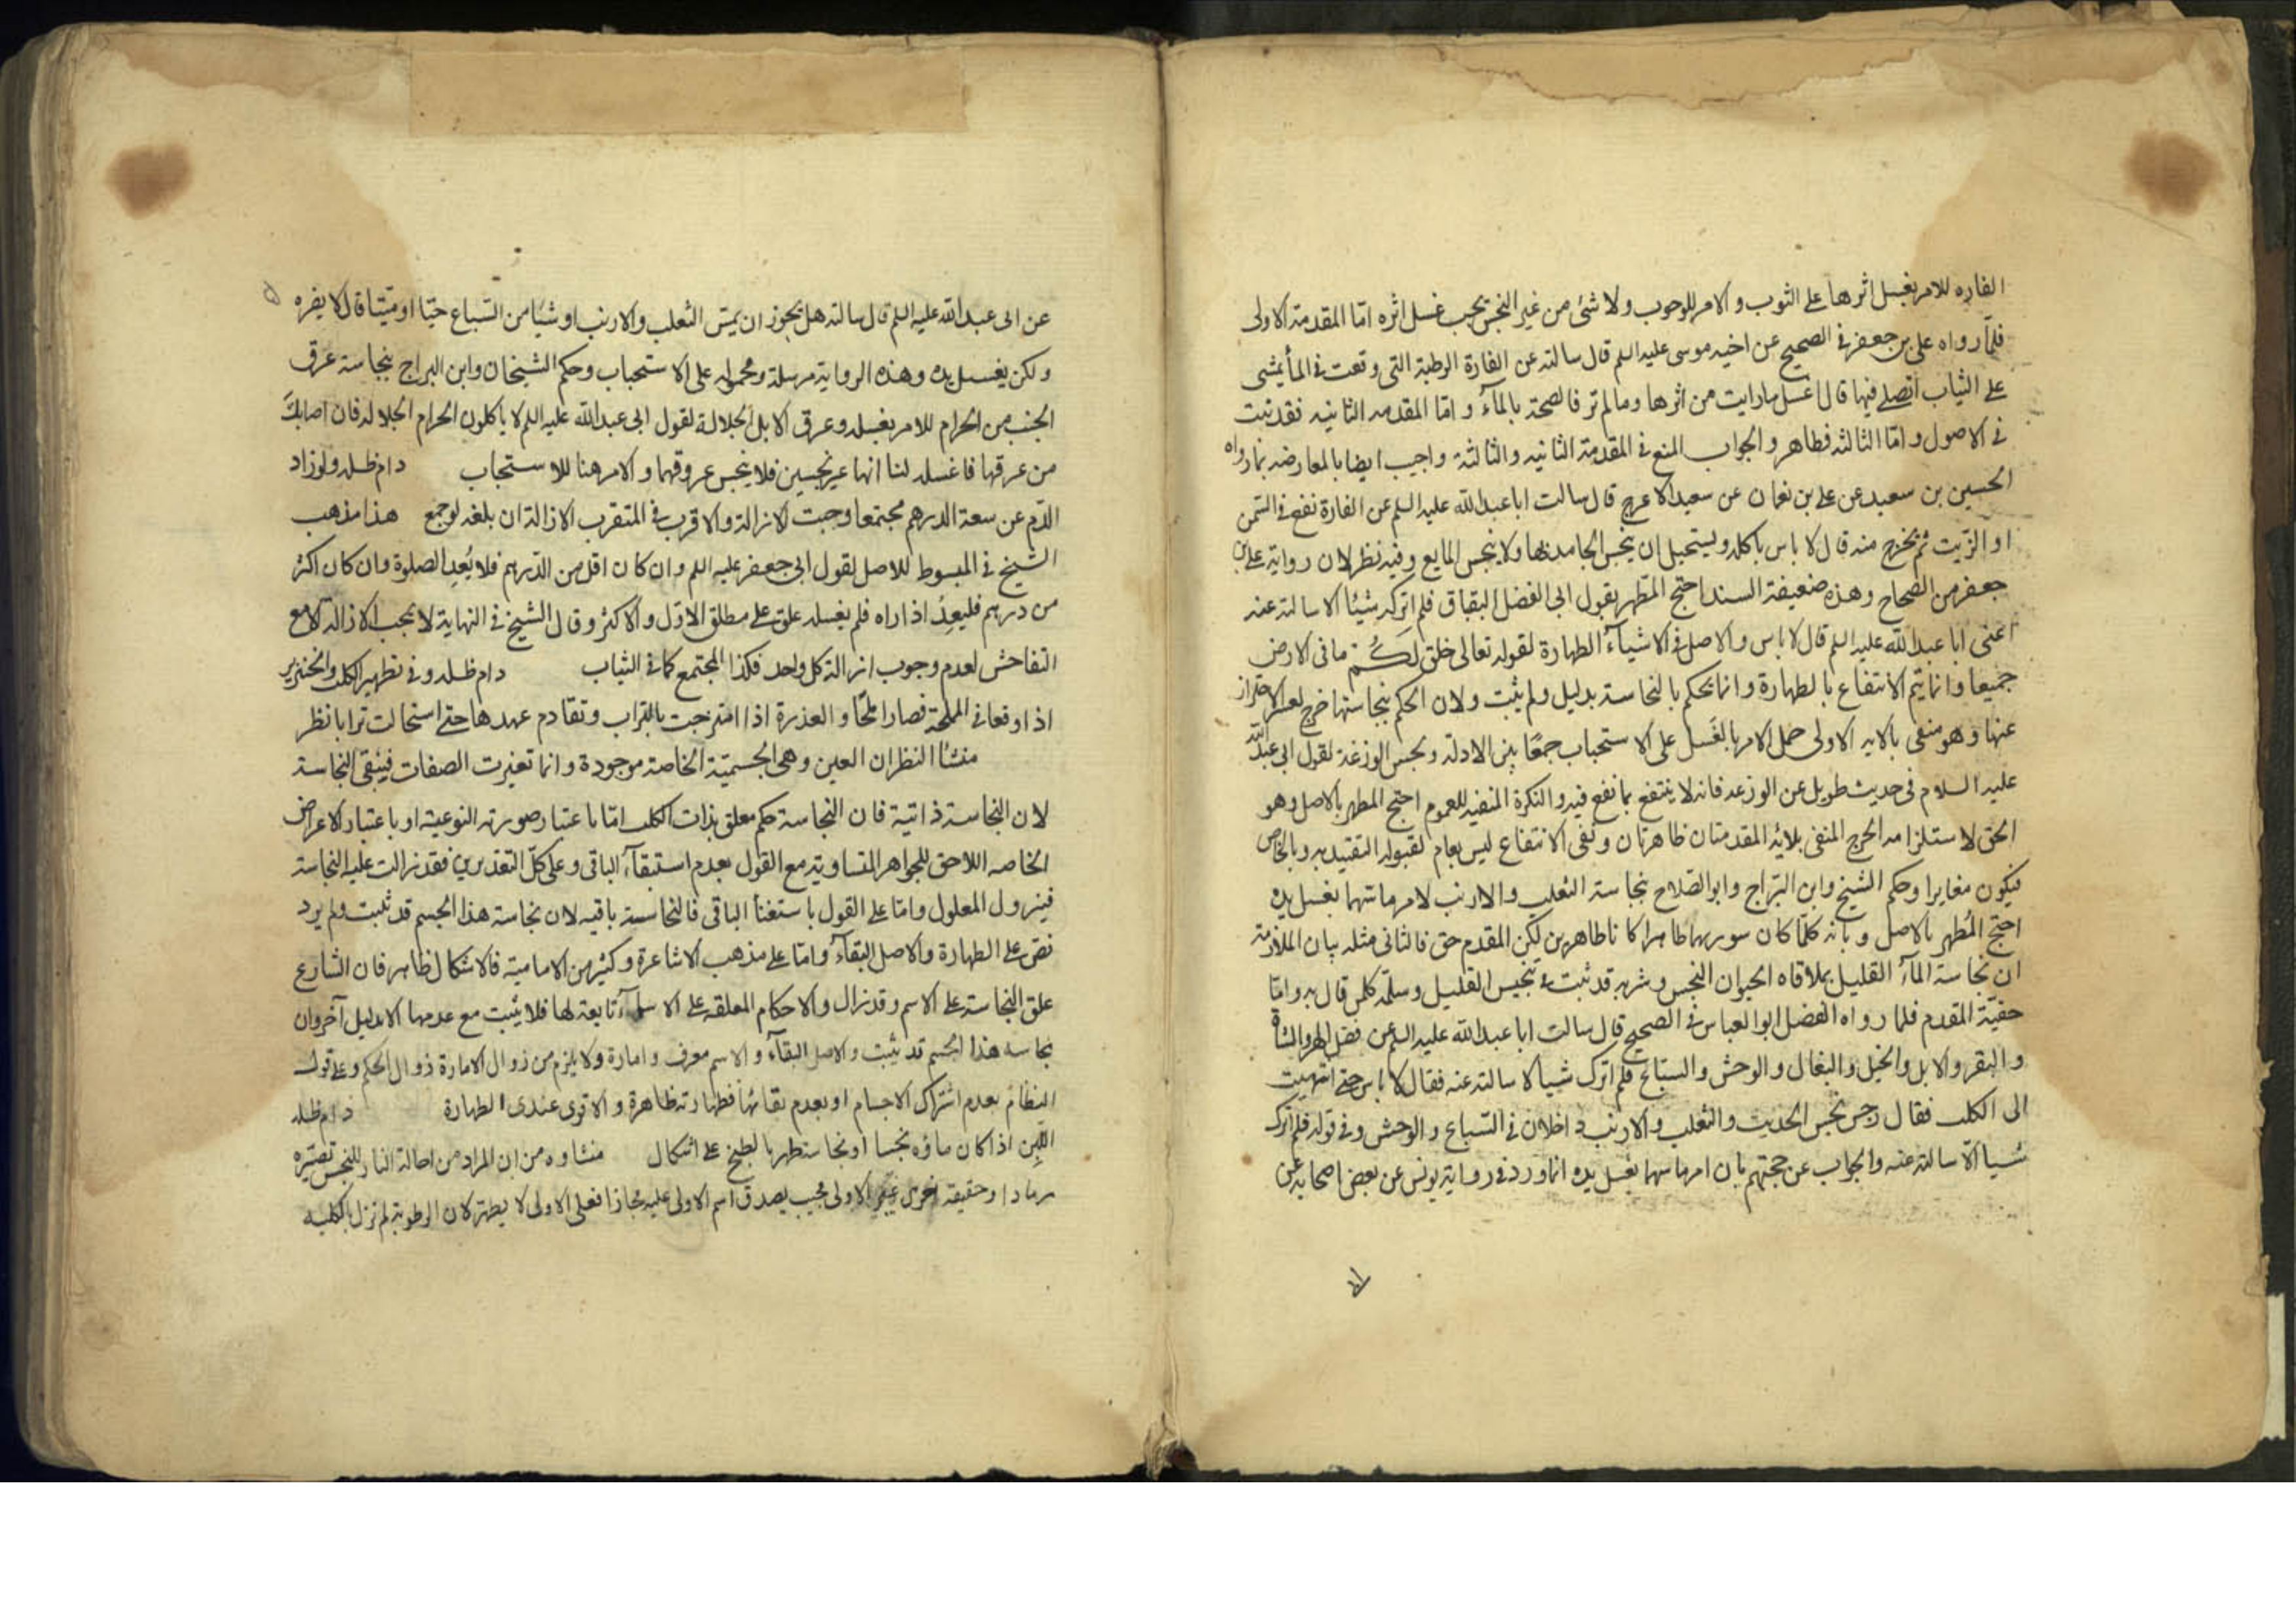 الفاره للامر بغسل اثرها على الثوب والامر للوجوب ولا شئ من غير النجس يجب غسل اثره امّا المقدمة الاولى
فلمّا رواه على بن جعفر فى الصحيح عن اخيه موسى عليه السلم قال سالته عن الفارة الرطبة التى وقعت فى الماء يمشى
على الثياب اتصلى فيها قال اغسل ما رايت من اثرها وما لم تر فانضحه بالماء و امّا المقدمه الثانيه فقد تبت
فى الاصول و امّا الثالثه فظاهر والجواب المنع فى المقدمة الثانيه والثالثة واجيب ايضا بالمعارضه بما رواه
الحسين بن سعيد عن على بن نعمان عن سعيد الاعرج قال سالت ابا عبد الله عليه السلم عن الفارة تقع فى السمن
او الزيت ثم يخرج منه قال لا باس باكله ويستحيل ان ينجس الجامد بها ولا ينجس المايع وفيه نظر لان رواية على بن
جعفر من الصحاح وهذه ضعيفة السند احتج المطهر بقول ابى الفضل البقباق فلم اترك شيئا الا سالته عنه
اعنى ابا عبد الله عليه السلم قال لا باس والاصل فى الاشياء الطهارة لقوله تعالى خلق لكم ما فى الارض
جميعا وانما يتم الانتفاع بالطهارة وانما يحكم بالنجاسة بدليل ولم يثبت ولان الحكم بنجاستها حرج لعسر الاحتراز
عنها وهو منفى بالايه الاولى حمل الامر بالغسل على الاستحباب جمعًا بين الادلة ونجس الوزغة لقول ابى عبد الله
عليه السلام فى حديث طويل عن الوزغه فانه لا ينتفع بما تقع فيه والنكرة المنفيه للعموم احتج المطهر بالاصل وهو
الحق لاستلزامه الحرج المنفى بلائه المقدمتان ظاهرتان ونفى الانتفاع ليس بعام لقبوله التقييد به وبالخاص
فيكون مغايرا وحكم الشيخ وابن البرّاج وابو الصلاح بنجاسة الثعلب والارنب لامر ماسّهما بغسل يده
احتج المُطهر بالاصل وبانه كلمّا كان سورهما طاهرا كانا طاهرين لكن المقدم حق فالثانى مثله بيان الملازمة
ان نجاسة الماء القليل بملاقاه الحيوان النجس وشربه قد ثبت تنجيس القليل وسلّمه كلمن قال به وامّا
حقيّة المقدم فلما رواه الفضل ابو العباس فى الصحيح قال سالت ابا عبد الله عليه السلم عن فضل الهر والشاة
والبقر والابل والخيل والبغال والوحش والسباع فلم اترك شيا الا سالته عنه فقال لا باس حتى انتهيت
الى الكلب فقال رجس نجس الحديث والثعلب والارنب داخلان فى السّباع والوحش وفى قوله فلم اترك
شيا الّا سالته عنه والجواب عن حجتهم بان امر ماسهما بغسل يده انما ورد فى رواية يونس عن بعض اصحابه عن
عن ابى عبد الله عليه السلم قال سالته هل يجوز ان يمسّ الثعلب والارنب او شيا من السّباع حيّا او ميّتا قال لا يضره
ولكن يغسل يده وهذه الرواية مرسلة ومحمولة على الاستحباب وحكم الشيخان وابن البراج بنجاسة عرق
الجنب من الحرام للامر بغسله وعرق الابل الجلالة لقول ابى عبد الله عليه السلم لا ياكلون الحرام الجلاله فان اصابك
من عرقها فاغسله لنا انها غير نجسين فلا ينجس عروقهما والامر هنا للاستحباب دام ظله ولو زاد
الدّم عن سعة الدرهم مجتمعا وجبت الازالة والاقرب فى المتفرّق الازالة ان بلغه لو جمع هذا مذهب
الشيخ فى المبسوط للاصل لقول ابى جعفر عليه السلم وان كان اقل من الدّرهم فلا يُعِد الصلوة وان كان اكثر
من درهم فليعِد اذا راه فلم يغسله علق على مطلق الاول والاكثر وقال الشيخ فى النهاية لا يجب الازالة الا مع
التفاحش لعدم وجوب ازالة كل واحد فكذا المجتمع كما فى الثياب دام ظله وفى تطهير الكلب والخنزير
اذا وقعا فى الملحة فصارا ملحًا والعذرة اذا امتزجت بالتراب وتقادم عهدها حتى استحالت ترابا نظر
منشأ النظر ان العين وهى الجسميّة الخاصة موجودة وانما تغيرت الصفات فيبقى النجاسة
لان النجاسة ذاتية فان النجاسة حكم معلق بذات الكلب امّا باعتبار صورته النوعيه او باعتبار الاعراض
الخاصه اللاحق للجواهر المتساوية مع القول بعدم استبقاء الباقى وعلى كلّ التقديرين فقد زالت علية النجاسة
فيزول المعلول وامّا على القول باستغنا الباقى فالنجاسة باقيه لان نجاسة هذا الجسم قد ثبت ولم يرد
نص على الطهارة والاصل البقاء وامّا على مذهب الاشاعرة وكثير من الاماميّة فالاشكال ظاهر فان الشارع
علق النجاسة على الاسم وقد زال والاحكام المعلقه على الاسماء تابعة لها فلا يثبت مع عدمها الا بدليل آخر وان
نجاسة هذا الجسم قد يثبت والاصل البقاء والاسم معرف وامارة ولا يلزم من زوال الامارة زوال الحكم وعلى قول
النظام بعدم اشتراك الاجسام او بعدم بقائها فطهارته ظاهرة والاقوى عندى الطهارة دام ظله
اللبن اذا كان ماؤه نجسا او نجاسة طهر بالطبخ على اشكال منشاوه من ان المراد من احالة النار للنجس تصيّره
رمادا او حقيقة اخرى غير الاولى بحيث يصدق اسم الاولى عليه مجازا فعلى الاولى لا يطهر لان الرطوبة لم تزل بالكليه